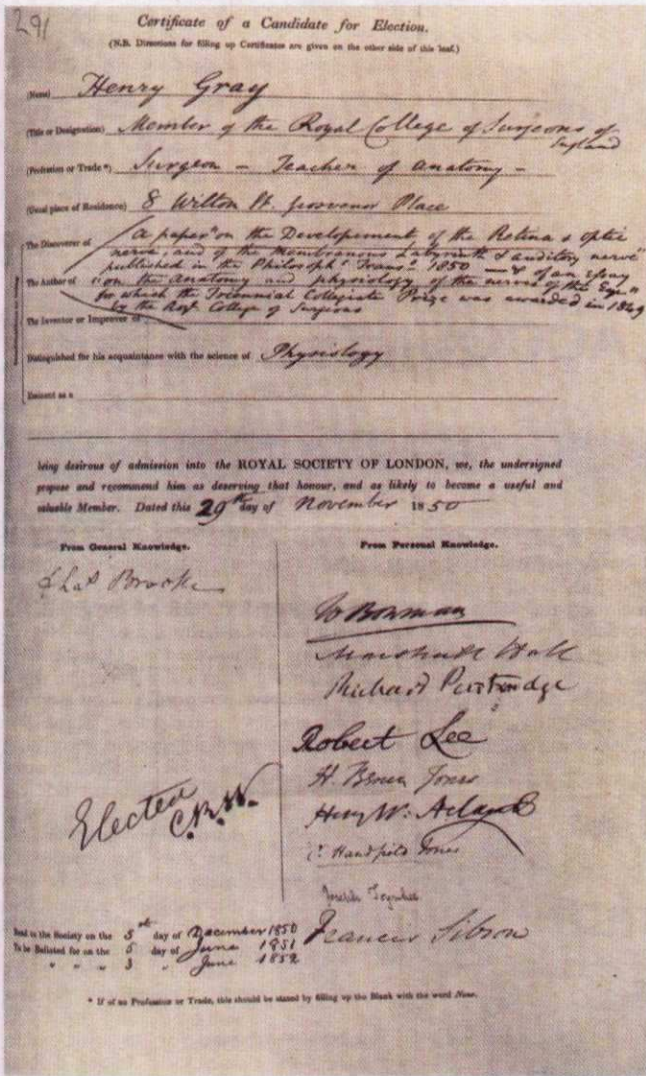 291
Certificate of a Candidate for Election.
(N.B. Directions for filling up Certificates are given on the other side of this leaf.)
(Name) Henry Gray
(Title or Designation) Member of the Royal College of Surgeons of
England
(Profession or Trade*) Surgeon – Teacher of Anatomy –
(Usual place of Residence) 8 Wilton St. Grosvenor Place
The Discoverer of
"A paper "on the Developement of the Retina & optic
nerve, and of the Membranous Labyrinth & auditory nerve"
published in the Philosoph. Trans. 1850 — & of an essay
The Author of "on the Anatomy and physiology of the nerves of the Eye"
for which the Triennial Collegiate Prize was awarded in 1849
by the Roy. College of Surgeons
The Inventor or Improver of
Distinguished for his acquaintance with the science of Physiology
Eminent as a
being desirous of admission into the ROYAL SOCIETY OF LONDON, we, the undersigned
propose and recommend him as deserving that honour, and as likely to become a useful and
valuable Member. Dated this 29th day of November 1850
From General Knowledge.
Chas Brooke
From Personal Knowledge.
W Bowman
Marshall Hall
Richard Partridge
Robert Lee
H. Bence Jones
Henry W. Acland
C. Handfield Jones
Joseph Toynbee
Francis Sibson
Elected
Read to the Society on the 5th day of December 1850
To be Balloted for on the 5 day of June 1851
" " " 3 " June 1852
* If of no Profession or Trade, this should be stated by filling up the Blank with the word None.